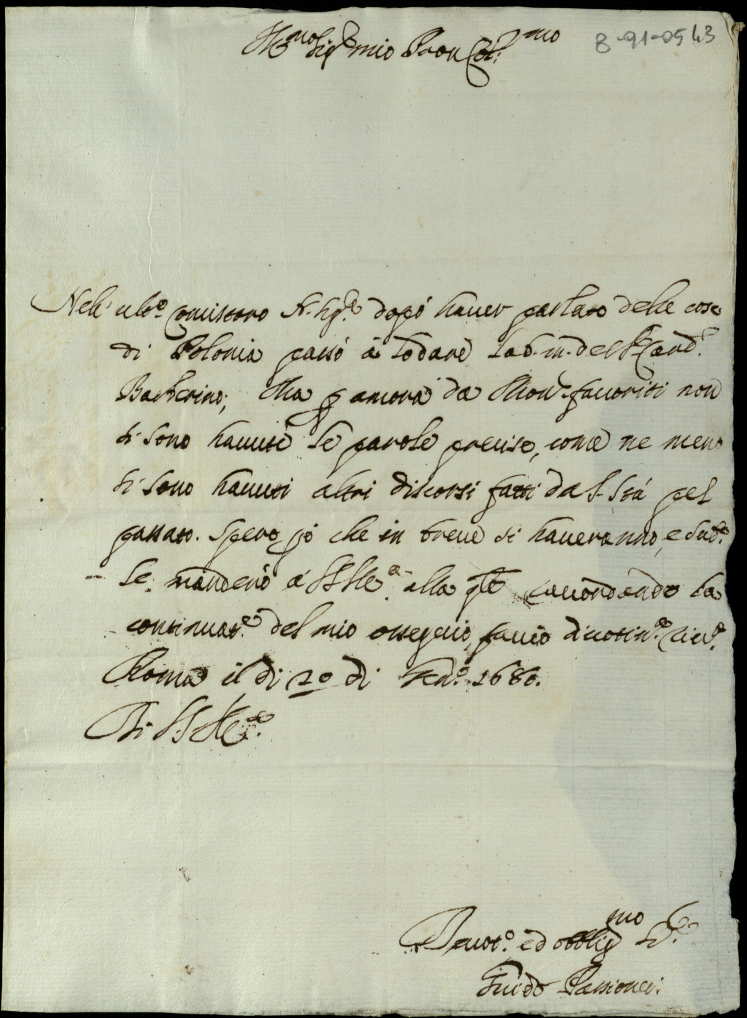 Ill.mo Sig.re mio Pron Col.mo
8-91-0543
Nell' ult.o Concistoro N. Sig.re dopò haver parlato delle cose
di Polonia passò à lodare la b. m. del S.r Card.
Barberino; Ma p ancora da Mon.r Favoriti non
si sono havute le parole precise, come ne meno
si sono havuti altri discorsi fatti da S. Stà pel
passato. Spero pò che in breve si haveranno, e sub.o
le manderò à V.S. Ill.ma alla qle raccordando la
continuat.e del mio ossequio, faccio divotiss.o river.a
Roma il di 20 di 1680.
Di V.S. Ill.ma
Devot.o ed obblig.mo Se.
Guido Passionei